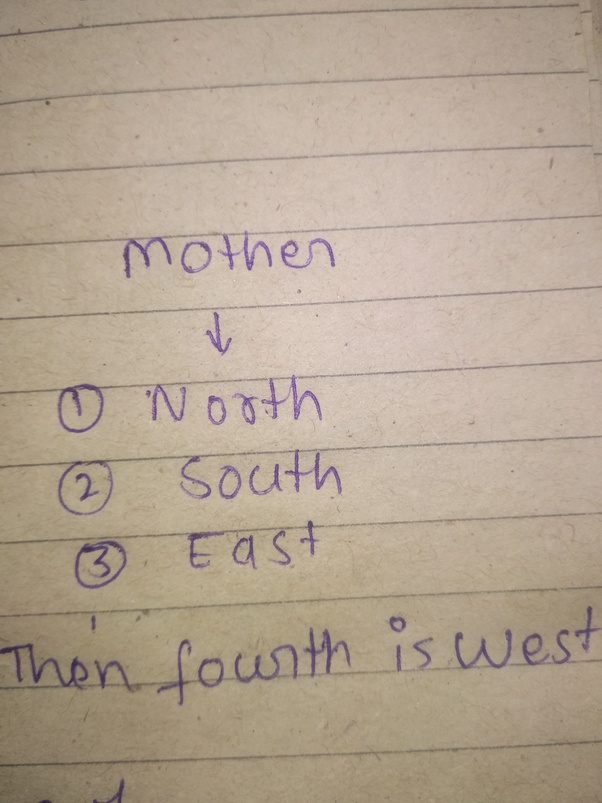 Mother
↓
① North
② South
③ East
Then fourth is west